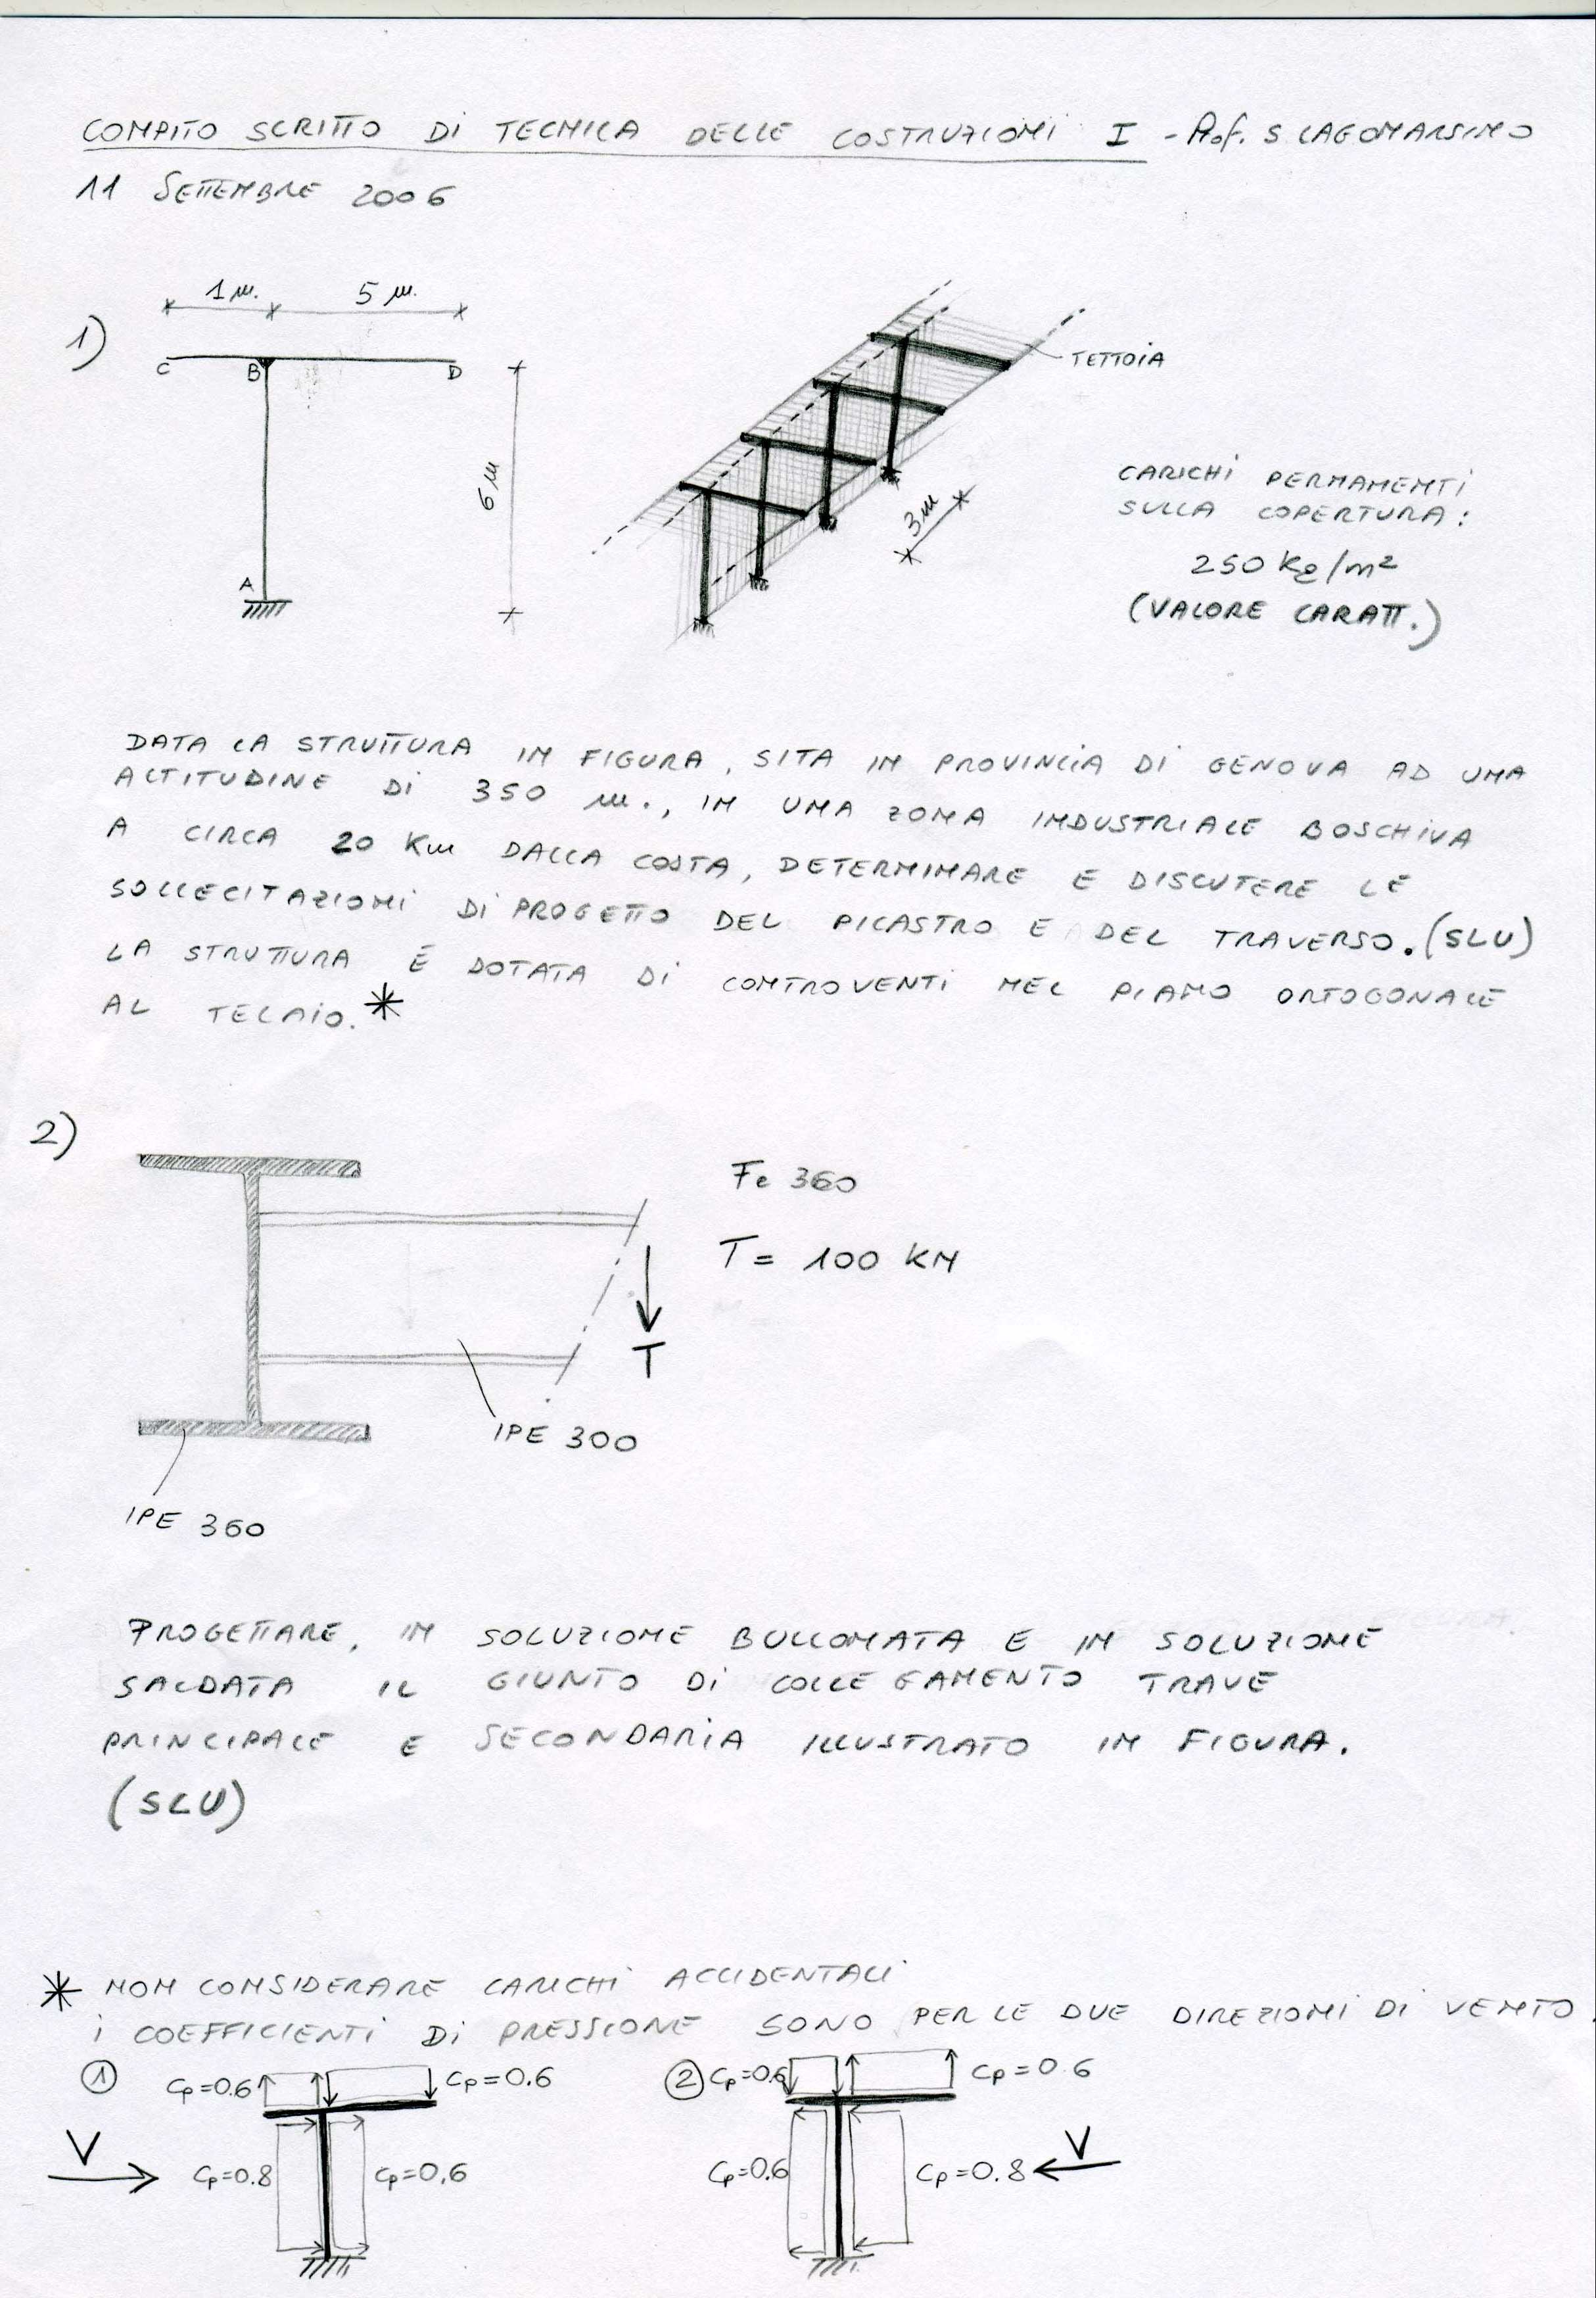 COMPITO SCRITTO DI TECNICA DELLE COSTRUZIONI I - Prof. S LAGOMARSINO
11 SETTEMBRE 2006
1 m. 5 m.
1)
C B D
TETTOIA
6 m
A
3 m
CARICHI PERMANENTI
SULLA COPERTURA:
250 kg/m²
(VALORE CARATT.)
DATA LA STRUTTURA IN FIGURA, SITA IN PROVINCIA DI GENOVA AD UNA
ALTITUDINE DI 350 m., IN UNA ZONA INDUSTRIALE BOSCHIVA
A CIRCA 20 Km DALLA COSTA, DETERMINARE E DISCUTERE LE
SOLLECITAZIONI DI PROGETTO DEL PILASTRO E DEL TRAVERSO. (SLU)
LA STRUTTURA È DOTATA DI CONTROVENTI NEL PIANO ORTOGONALE
AL TELAIO. *
2)
Fe 360
T = 100 KN
T
IPE 300
IPE 360
PROGETTARE, IN SOLUZIONE BULLONATA E IN SOLUZIONE
SALDATA IL GIUNTO DI COLLEGAMENTO TRAVE
PRINCIPALE E SECONDARIA ILLUSTRATO IN FIGURA.
(SLU)
* NON CONSIDERARE CARICHI ACCIDENTALI
I COEFFICIENTI DI PRESSIONE SONO PER LE DUE DIREZIONI DI VENTO.
1 Cp=0.6 Cp=0.6 2 Cp=0.6 Cp=0.6
V Cp=0.8 Cp=0.6 Cp=0.6 Cp=0.8 V